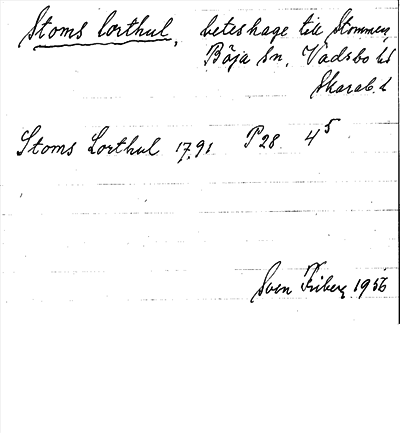 Stoms Lorthul, beteshage till Stommen,
Böja sn, Vadsbo hd
Skarab. l
Stoms Lorthul 1791 P28 4⁵
Sven Friberg 1956